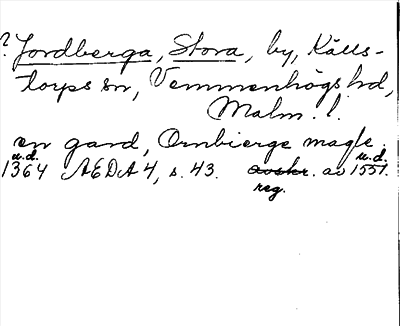 ? Jordberga, Stora, by, Källs-
torps sn, Vemmenhögs hd,
Malm. l.
en gard, Ornbierge magle.
u.d. u.d.
1364 AEDA 4, s. 43. avskr. av 1551.
reg.